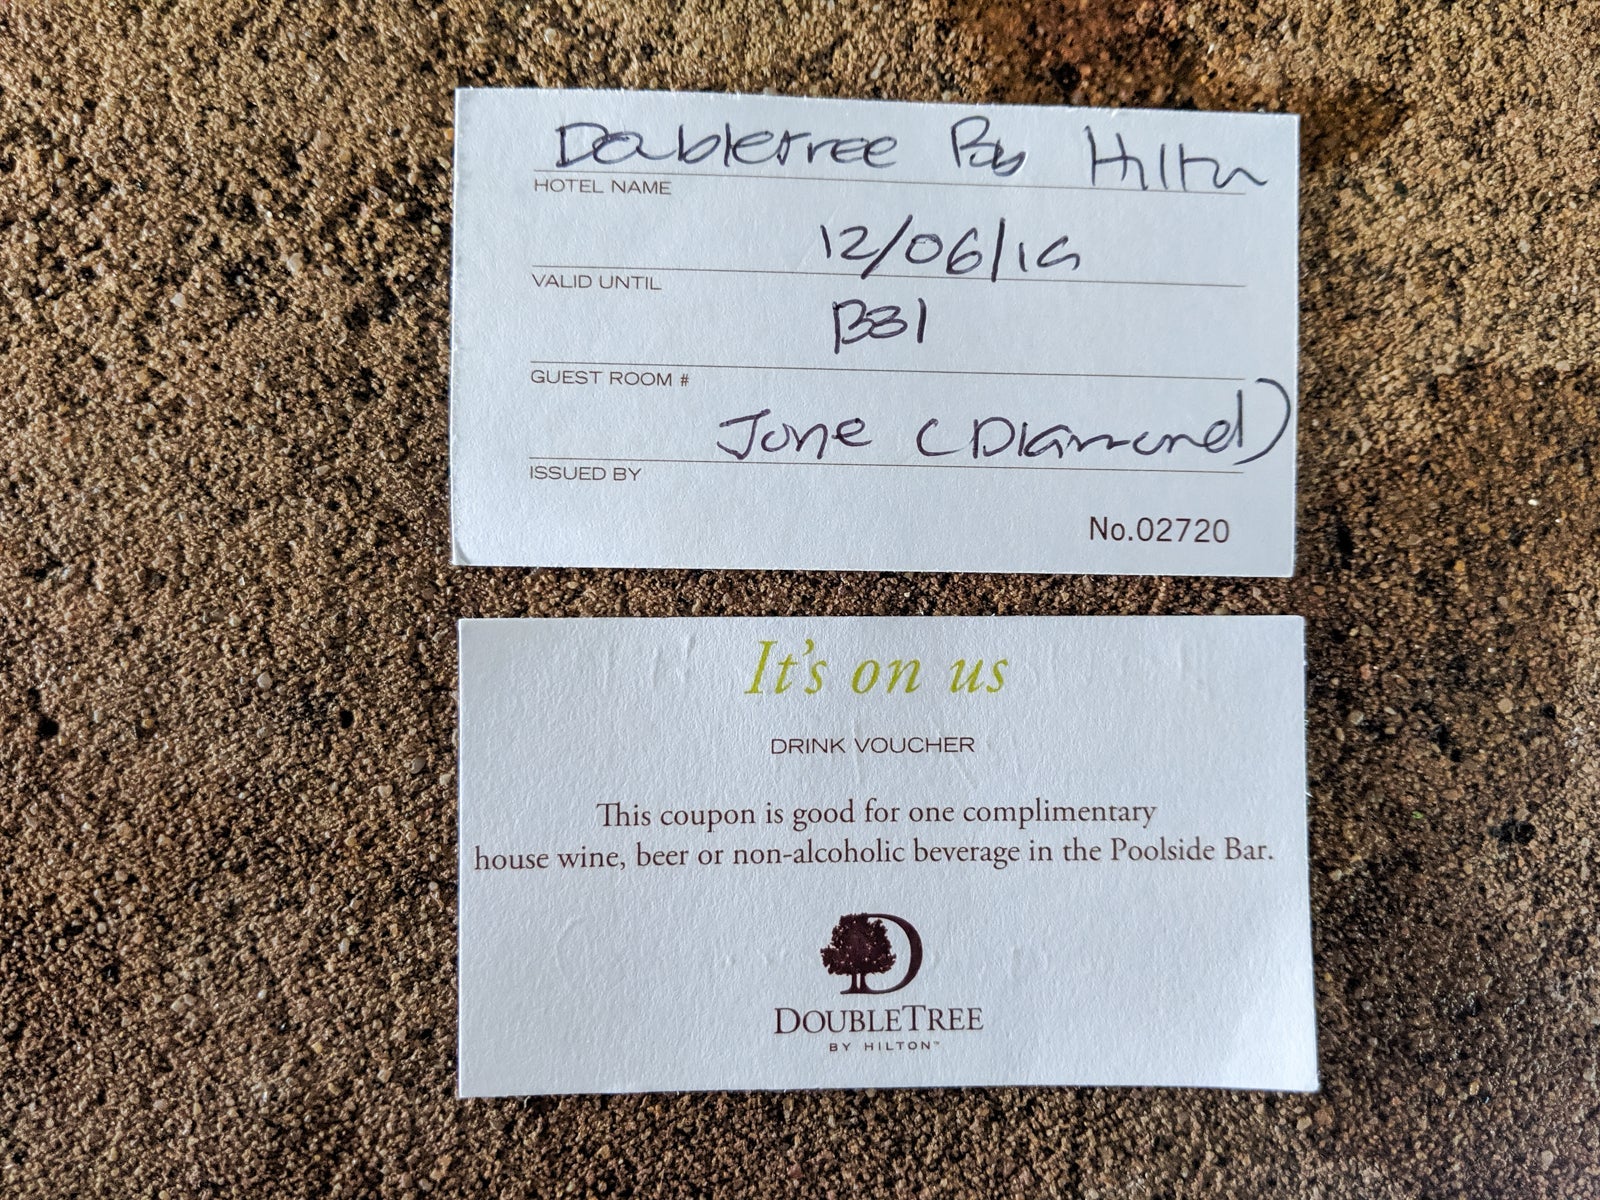 Doubletree By Hilton
HOTEL NAME
12/06/19
VALID UNTIL
B31
GUEST ROOM #
Jone (Diamond)
ISSUED BY
No.02720
It's on us
DRINK VOUCHER
This coupon is good for one complimentary
house wine, beer or non-alcoholic beverage in the Poolside Bar.
D
DOUBLETREE
BY HILTON™